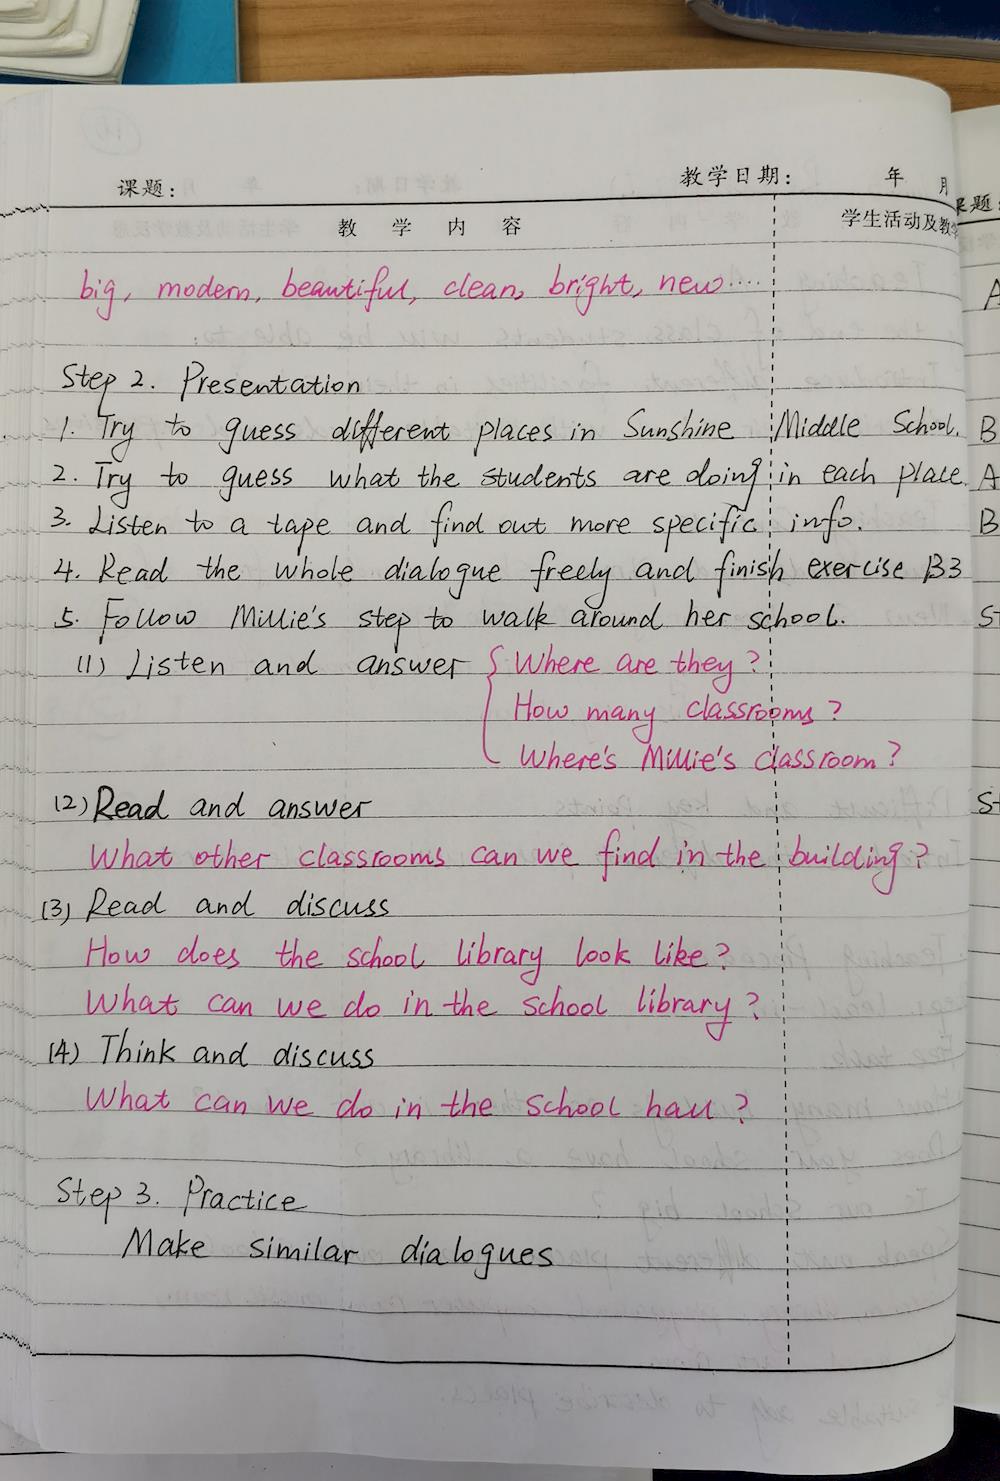 课题： 教学日期： 年 月
教 学 内 容 学生活动及教学
big, modern, beautiful, clean, bright, new....
Step 2. Presentation
1. Try to guess different places in Sunshine Middle School.
2. Try to guess what the students are doing in each place.
3. Listen to a tape and find out more specific info.
4. Read the whole dialogue freely and finish exercise B3
5. Follow Millie's step to walk around her school.
(1) Listen and answer { Where are they?
How many classrooms?
Where's Millie's classroom?
(2) Read and answer
What other classrooms can we find in the building?
(3) Read and discuss
How does the school library look like?
What can we do in the school library?
(4) Think and discuss
What can we do in the school hall?
Step 3. Practice
Make similar dialogues